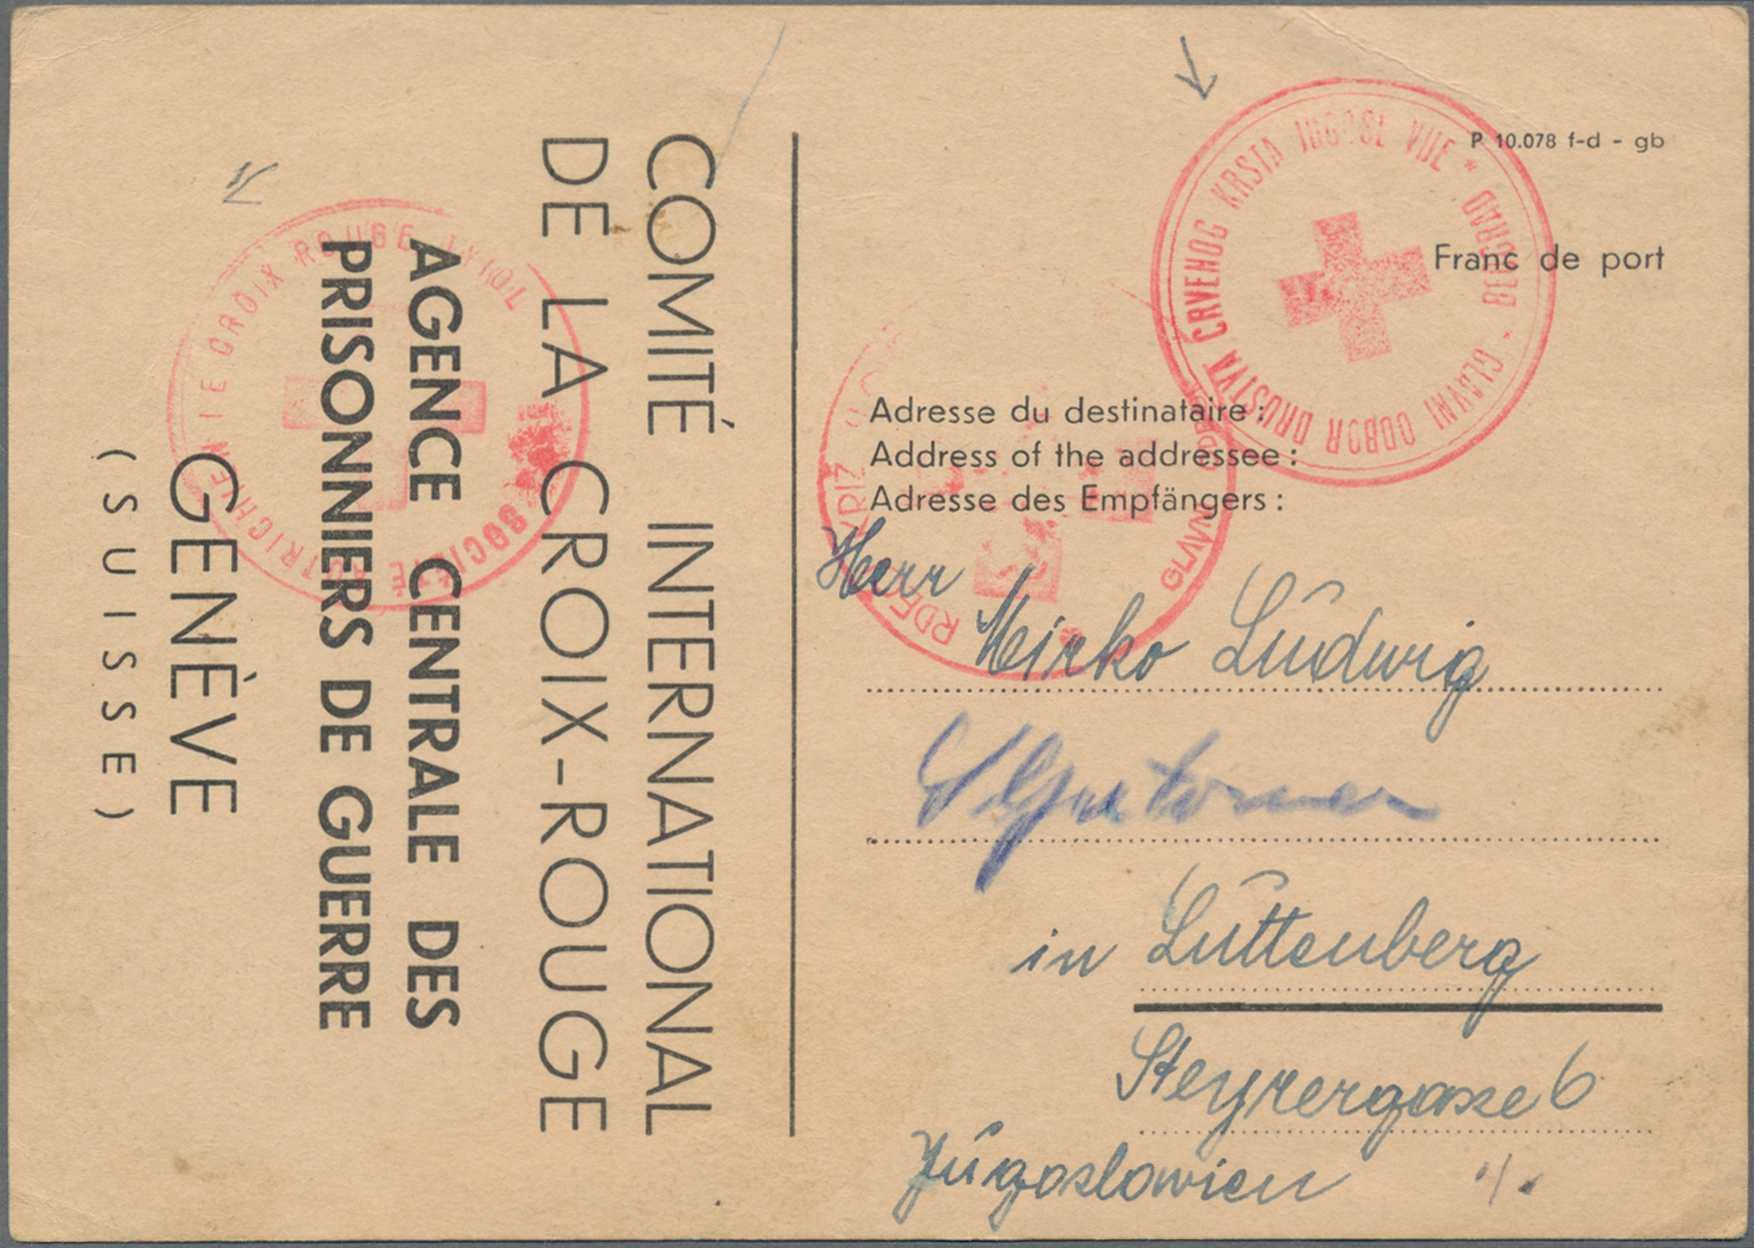 COMITÉ INTERNATIONAL
DE LA CROIX-ROUGE
AGENCE CENTRALE DES
PRISONNIERS DE GUERRE
GENÈVE
(SUISSE)
SOCIETE AUTRICHIENNE CROIX ROUGE
P 10.078 f-d - gb
GLAVNI ODBOR DRUSTVA CRVENOG KRSTA * BEOGRAD
Franc de port
Adresse du destinataire :
Address of the addressee :
Adresse des Empfängers :
GLAVNI
Herr
Mirko Ludwig
in Luttenberg
Steyrergasse 6
Jugoslowien